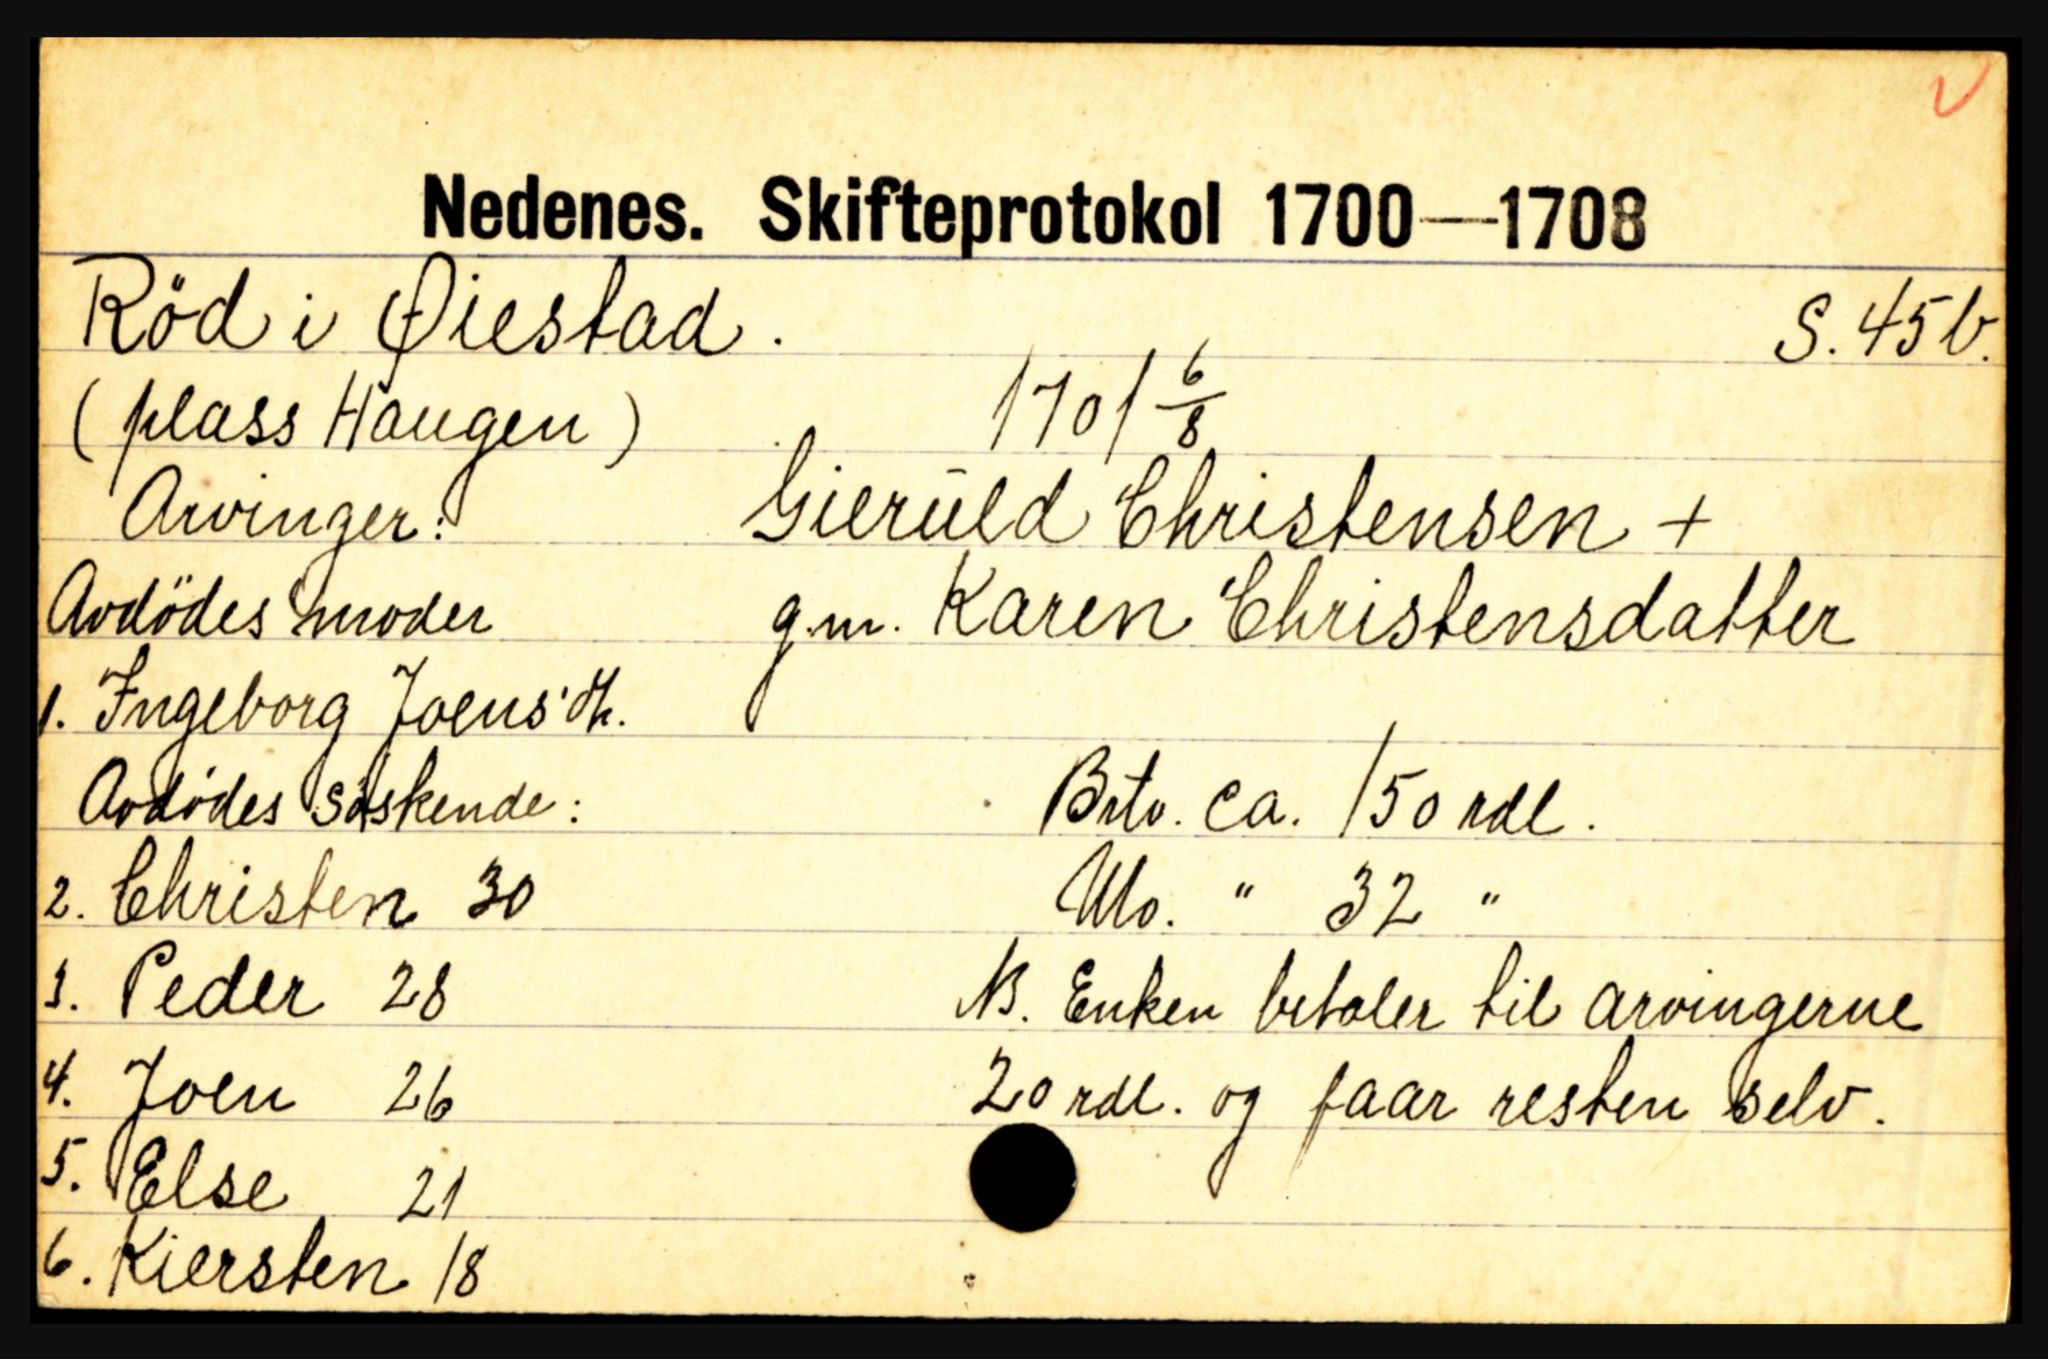 Nedenes. Skifteprotokol 1700—1708
Röd i Øiestad. S. 45b.
(plass Haugen) 1701 6/8
Arvinger: Gieruld Christensen +
Avdödes moder g.m. Karen Christensdatter
1. Ingeborg Joensdtr.
Avdödes söskende: Brto. ca. 150 rdl.
2. Christen 30 Nto. " 32 "
3. Peder 28 NB. Enken betaler til arvingerne
4. Joen 26 20 rdl. og faar resten selv.
5. Else 21
6. Kiersten 18